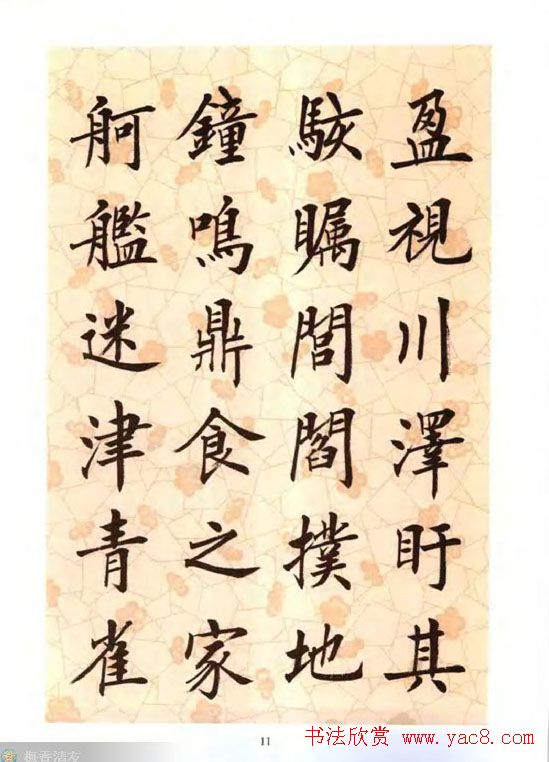 盈視川澤盱其
駭矚閭閻撲地
鐘鳴鼎食之家
舸艦迷津青雀
11
书法欣赏 www.yac8.com
梅香清友